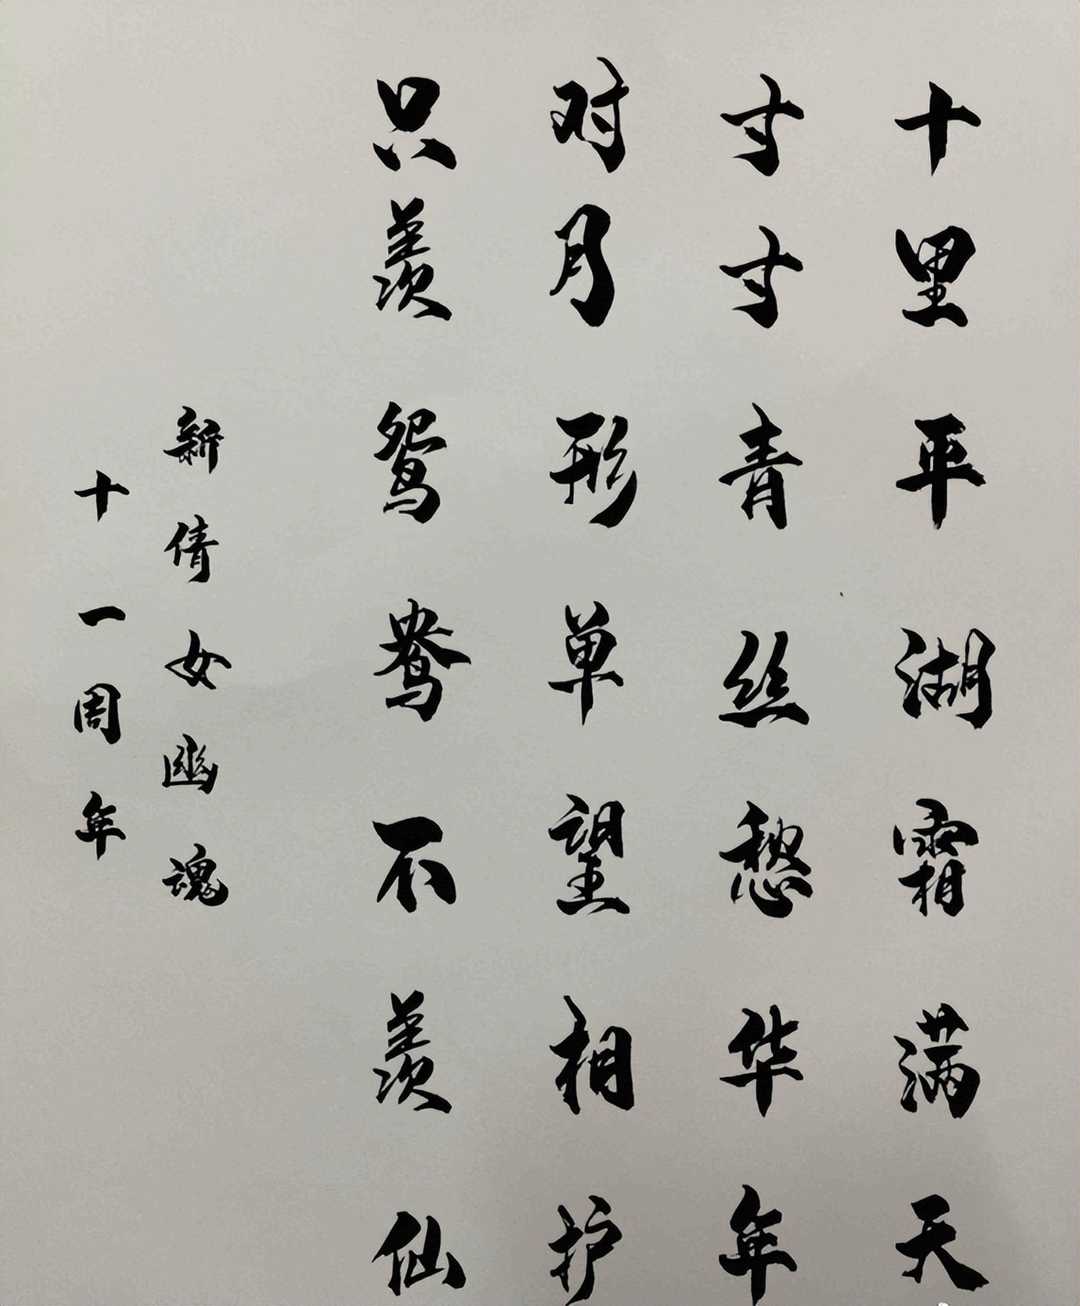 十里平湖霜满天
寸寸青丝愁华年
对月形单望相护
只羡鸳鸯不羡仙
新倩女幽魂
十一周年